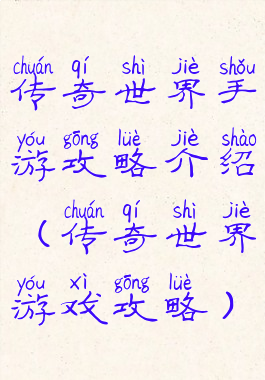 chuán qí shì jiè shǒu
传奇世界手
yóu gōng lüè jiè shào
游攻略介绍
chuán qí shì jiè
(传奇世界
yóu xì gōng lüè
游戏攻略)